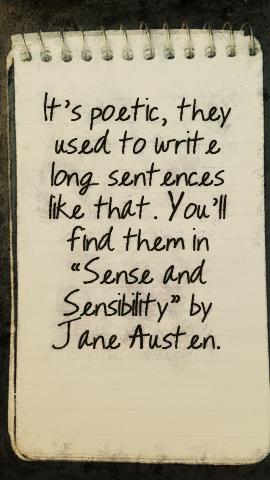 It's poetic, they
used to write
long sentences
like that. You'll
find them in
“Sense and
Sensibility” by
Jane Austen.